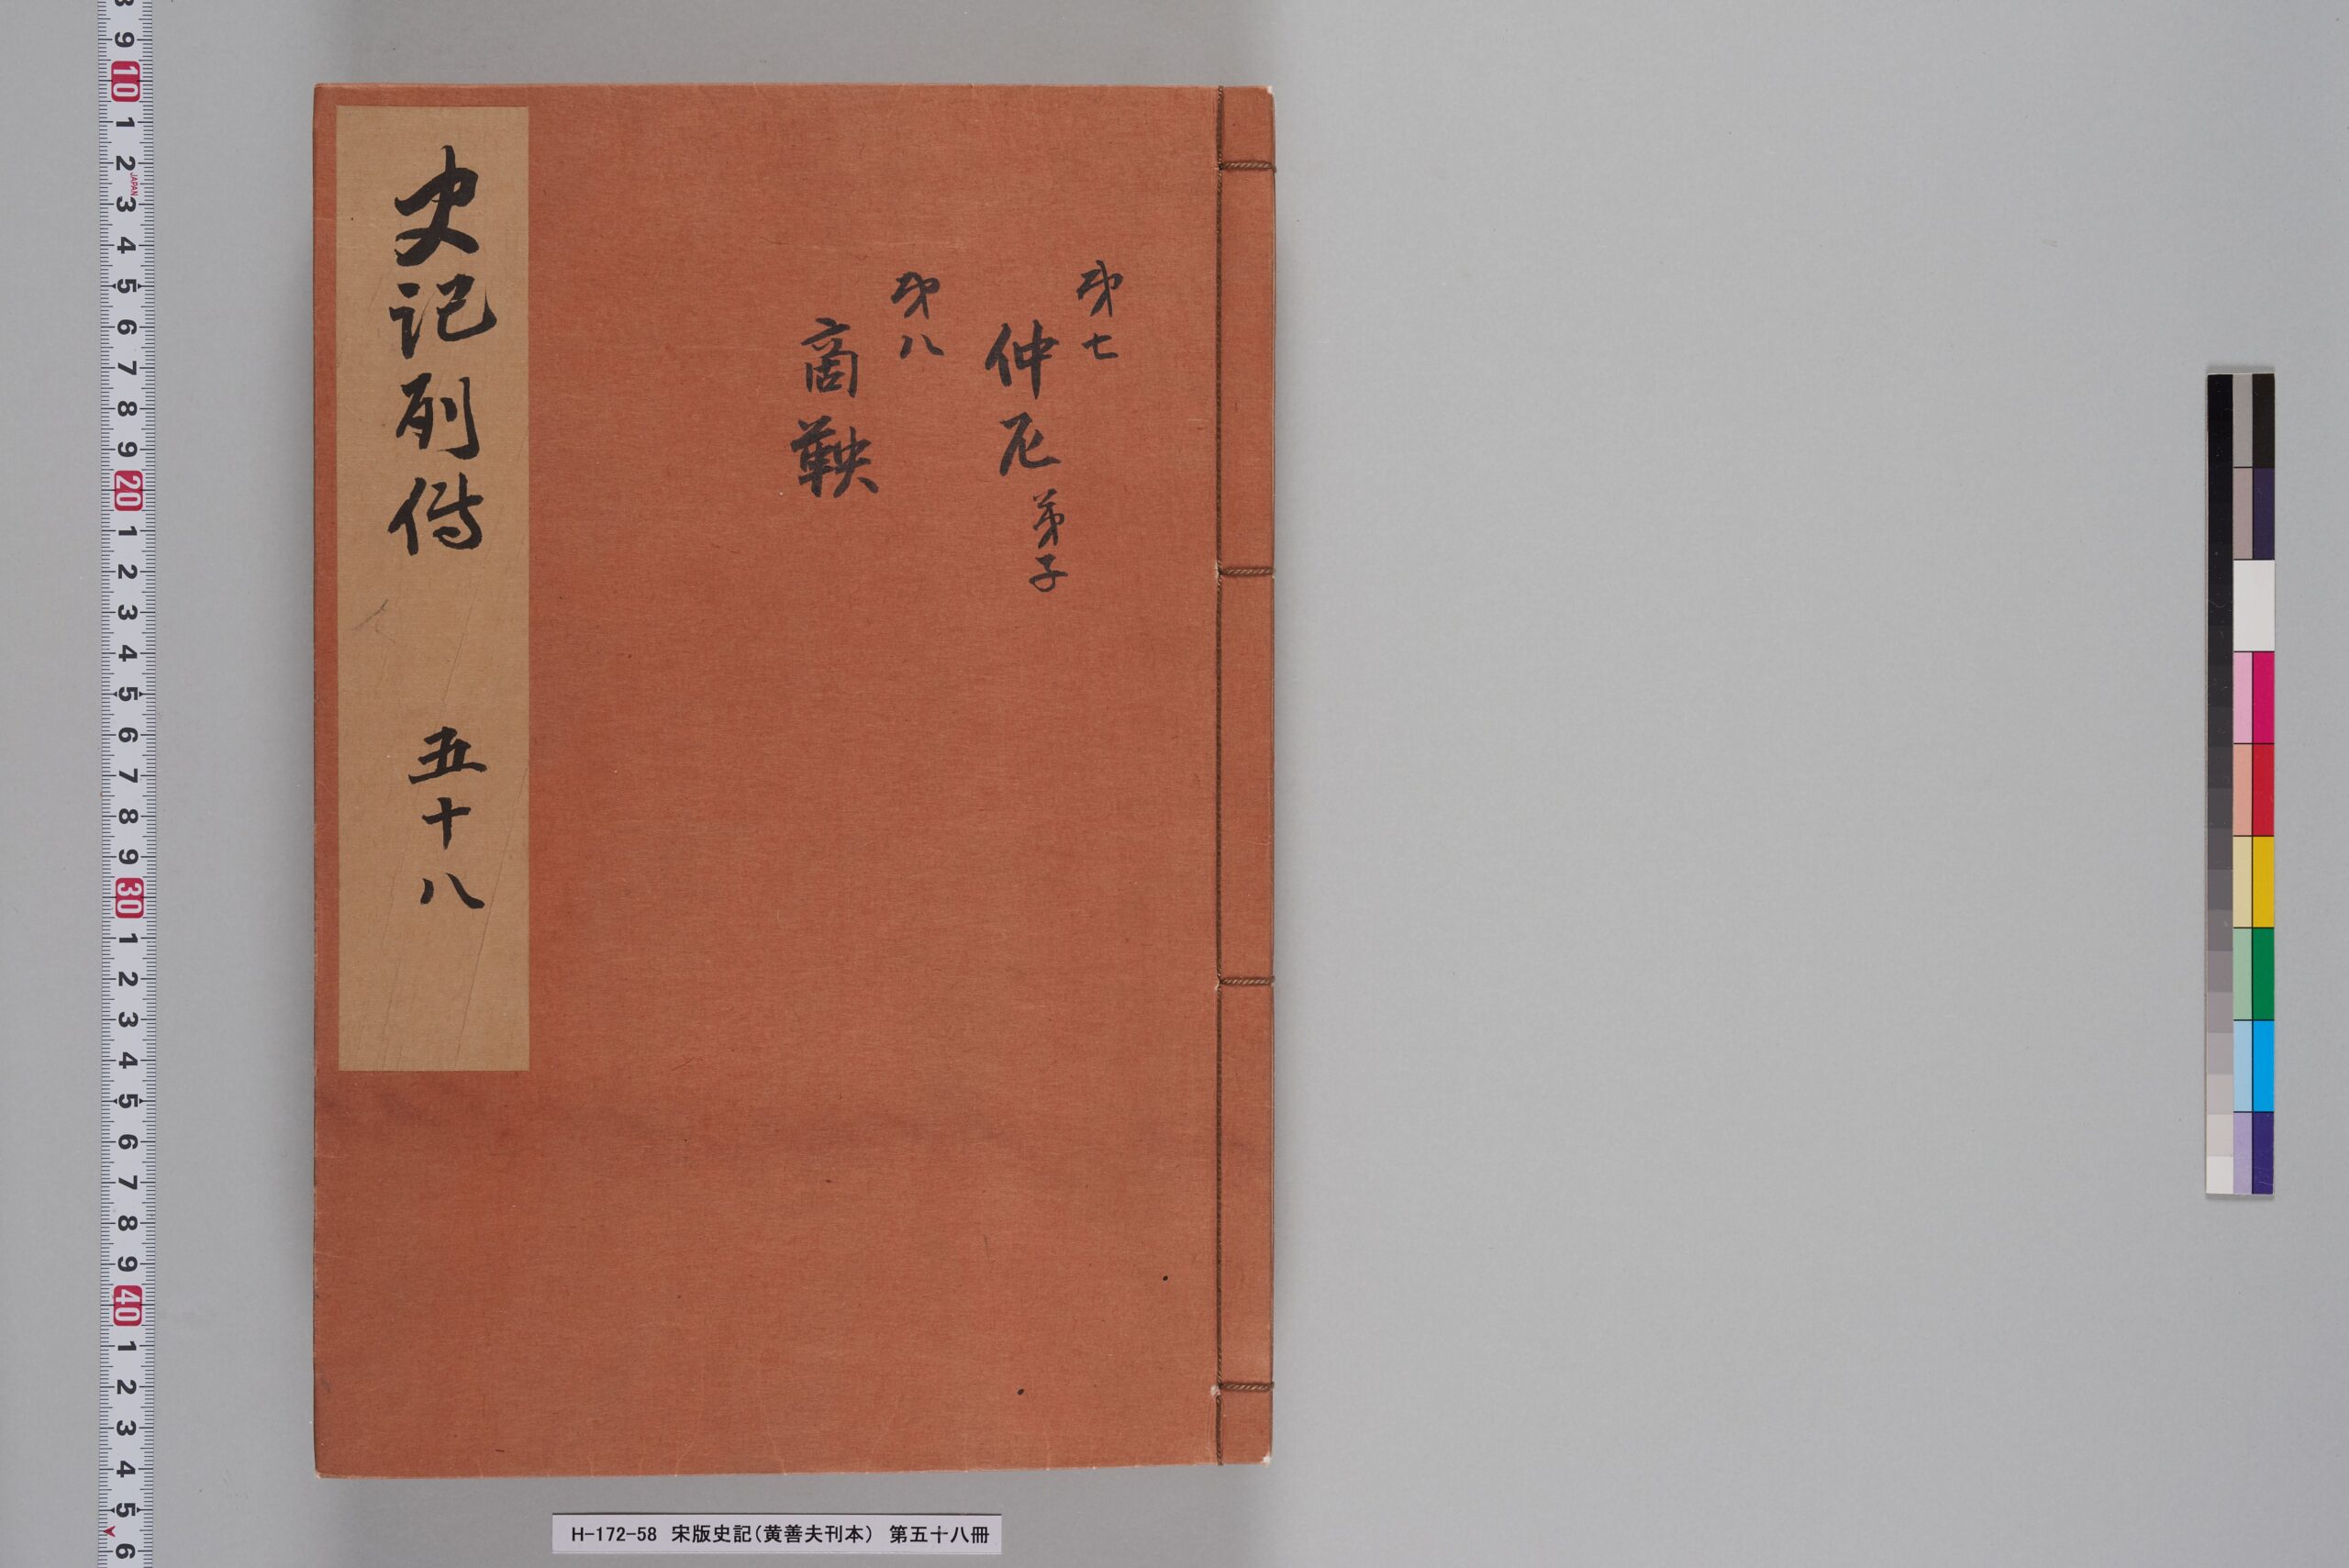 第七
仲尼弟子
第八
商鞅
史記列傳 五十八
H-172-58 宋版史記(黄善夫刊本) 第五十八冊
9
10
1
2
JAPAN
3
4
5
6
7
8
9
20
1
2
3
4
5
6
7
8
9
30
1
2
3
4
5
6
7
8
9
40
1
2
3
4
5
6